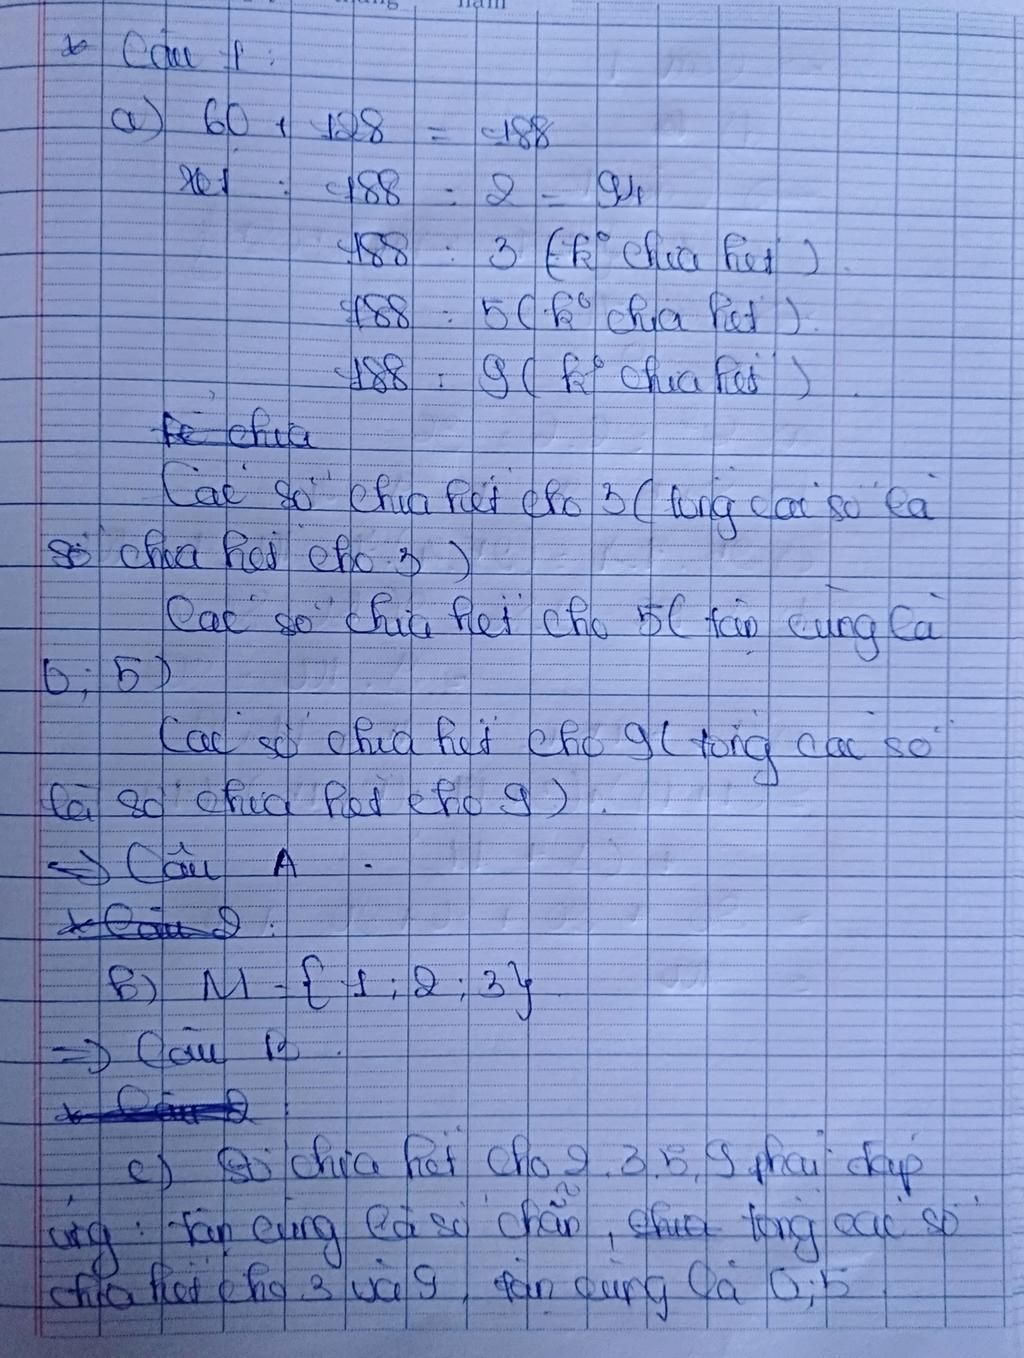 năm
* Câu 1:
a) 60 + 128 = 188
xét : 188 : 2 = 94
188 : 3 (k° chia hết).
188 : 5 (k° chia hết).
188 : 9 (k° chia hết).
chia
Các số chia hết cho 3 (tổng các số là
số chia hết cho 3)
Các số chia hết cho 5 (tận cùng là
0; 5)
Các số chia hết cho 9 (tổng các số
là số chia hết cho 9).
=> Câu A.
* Câu 2:
b) M = {1; 2; 3}
=> Câu B.
* Câu 2:
c) Số chia hết cho 2, 3, 5, 9 phải đáp
ứng: tận cùng là số chẵn, chia tổng các số
chia hết cho 3 và 9, tận cùng là 0; 5